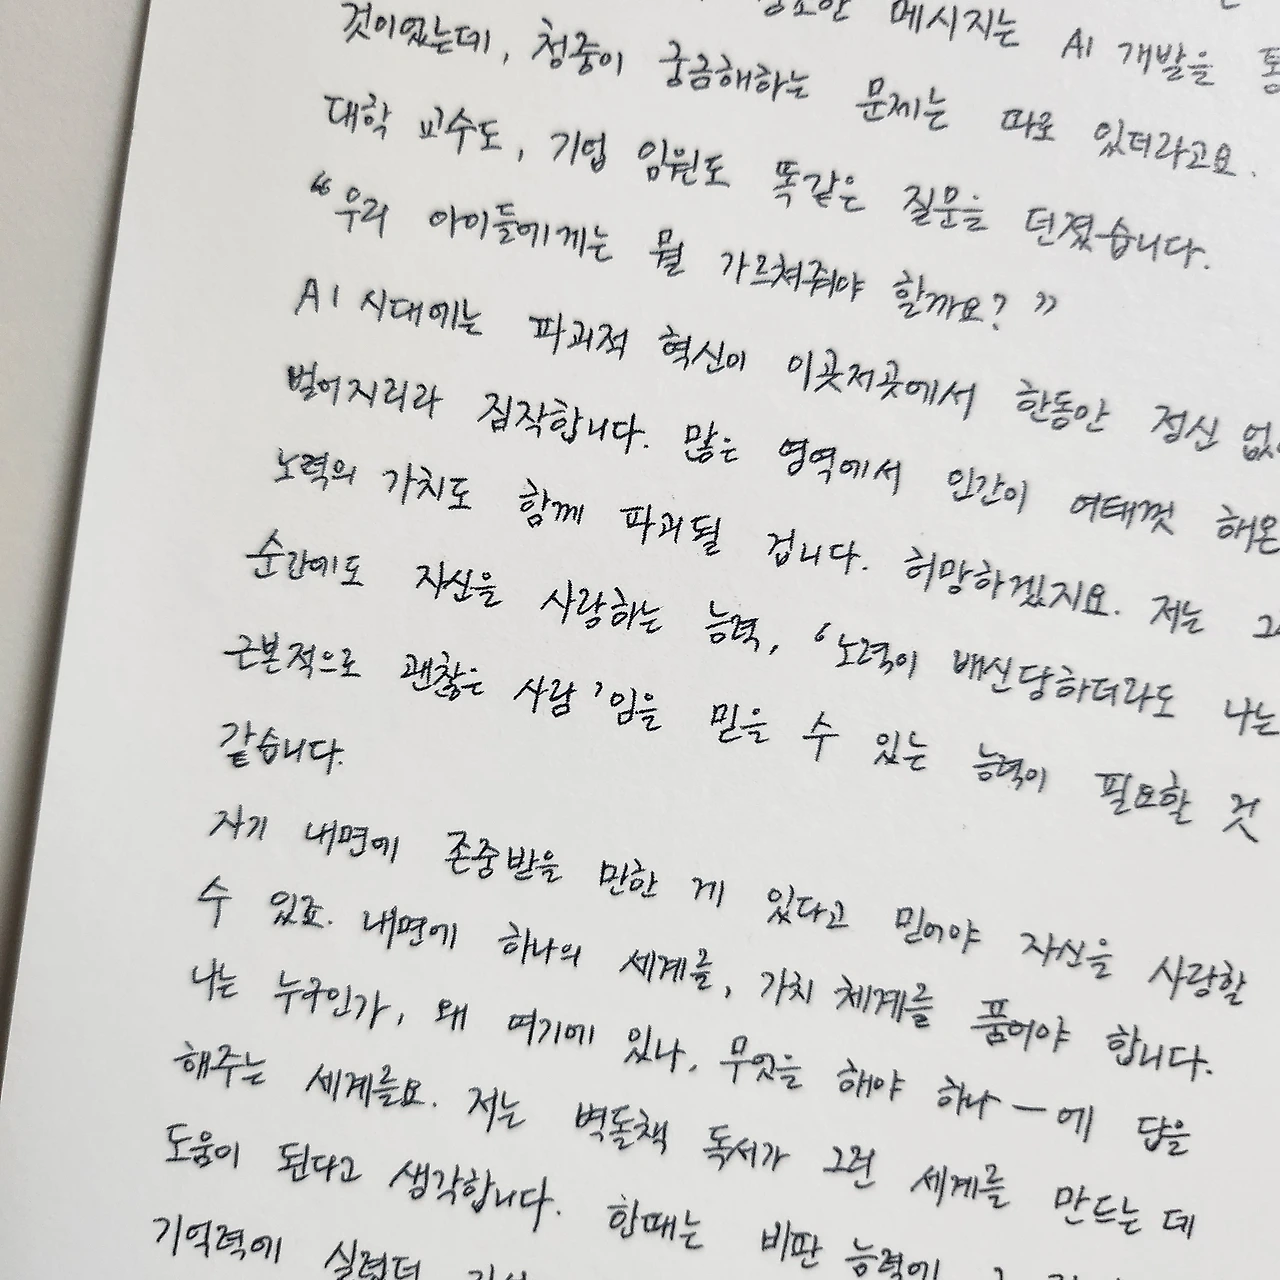 메시지는 AI 개발을
것이었는데, 청중이 궁금해하는 문제는 따로 있더라고요.
대학 교수도, 기업 임원도 똑같은 질문을 던졌습니다.
“우리 아이들에게는 뭘 가르쳐줘야 할까요?”
AI 시대에는 파괴적 혁신이 이곳저곳에서 한동안 정신 없
벌어지리라 짐작합니다. 많은 영역에서 인간이 여태껏 해온
노력의 가치도 함께 파괴될 겁니다. 허망하겠지요. 저는
순간에도 자신을 사랑하는 능력, ‘노력이 배신당하더라도 나는
근본적으로 괜찮은 사람’임을 믿을 수 있는 능력이 필요할 것
같습니다.
자기 내면에 존중받을 만한 게 있다고 믿어야 자신을 사랑할
수 있죠. 내면에 하나의 세계를, 가치 체계를 품어야 합니다.
나는 누구인가, 왜 여기에 있나, 무엇을 해야 하나—에 답을
해주는 세계를요. 저는 벽돌책 독서가 그런 세계를 만드는 데
도움이 된다고 생각합니다. 한때는 비판 능력에
기억력에 실렸던